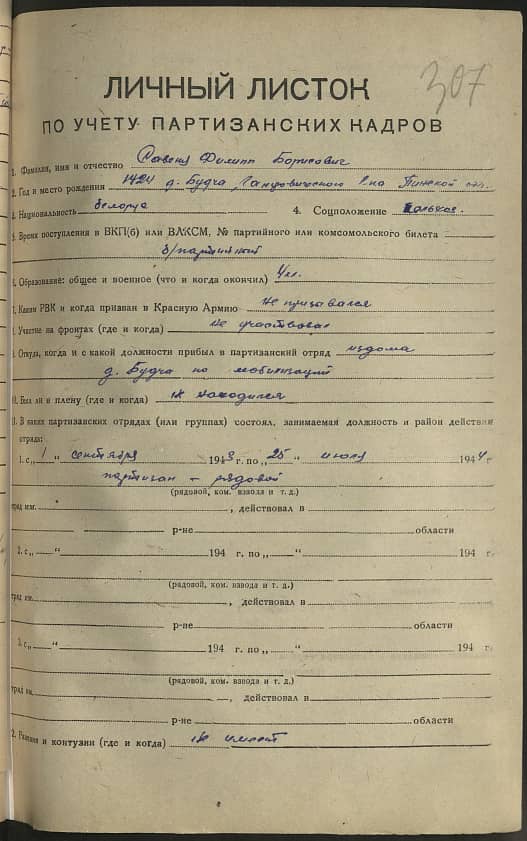 307
ЛИЧНЫЙ ЛИСТОК
ПО УЧЕТУ ПАРТИЗАНСКИХ КАДРОВ
1. Фамилия, имя и отчество Савеня Филипп Борисович
2. Год и место рождения 1924 д. Будча Ганцевического р-на Пинской обл.
3. Национальность белорус 4. Соцположение колхоз.
5. Время поступления в ВКП(б) или ВЛКСМ, № партийного или комсомольского билета
б/партийный
6. Образование: общее и военное (что и когда окончил) 4 кл.
7. Каким РВК и когда призван в Красную Армию Не призывался
8. Участие на фронтах (где и когда) не участвовал
9. Откуда, когда и с какой должности прибыл в партизанский отряд издома
д. Будча по мобилизации
10. Был ли в плену (где и когда) не находился
11. В каких партизанских отрядах (или группах) состоял, занимаемая должность и район действия
отряда:
1. с „1“ сентября 1943 г. по „25“ июля 1944 г.
партизан – рядовой
(рядовой, ком. взвода и т. д.)
отряд им. , действовал в
р-не области
2. с „ “ 194 г. по „ “ 194 г.
(рядовой, ком. взвода и т. д.)
отряд им. , действовал в
р-не области
3. с „ “ 194 г. по „ “ 194 г.
(рядовой, ком. взвода и т. д.)
отряд им. , действовал в
р-не области
12. Ранения и контузии (где и когда) не имеет